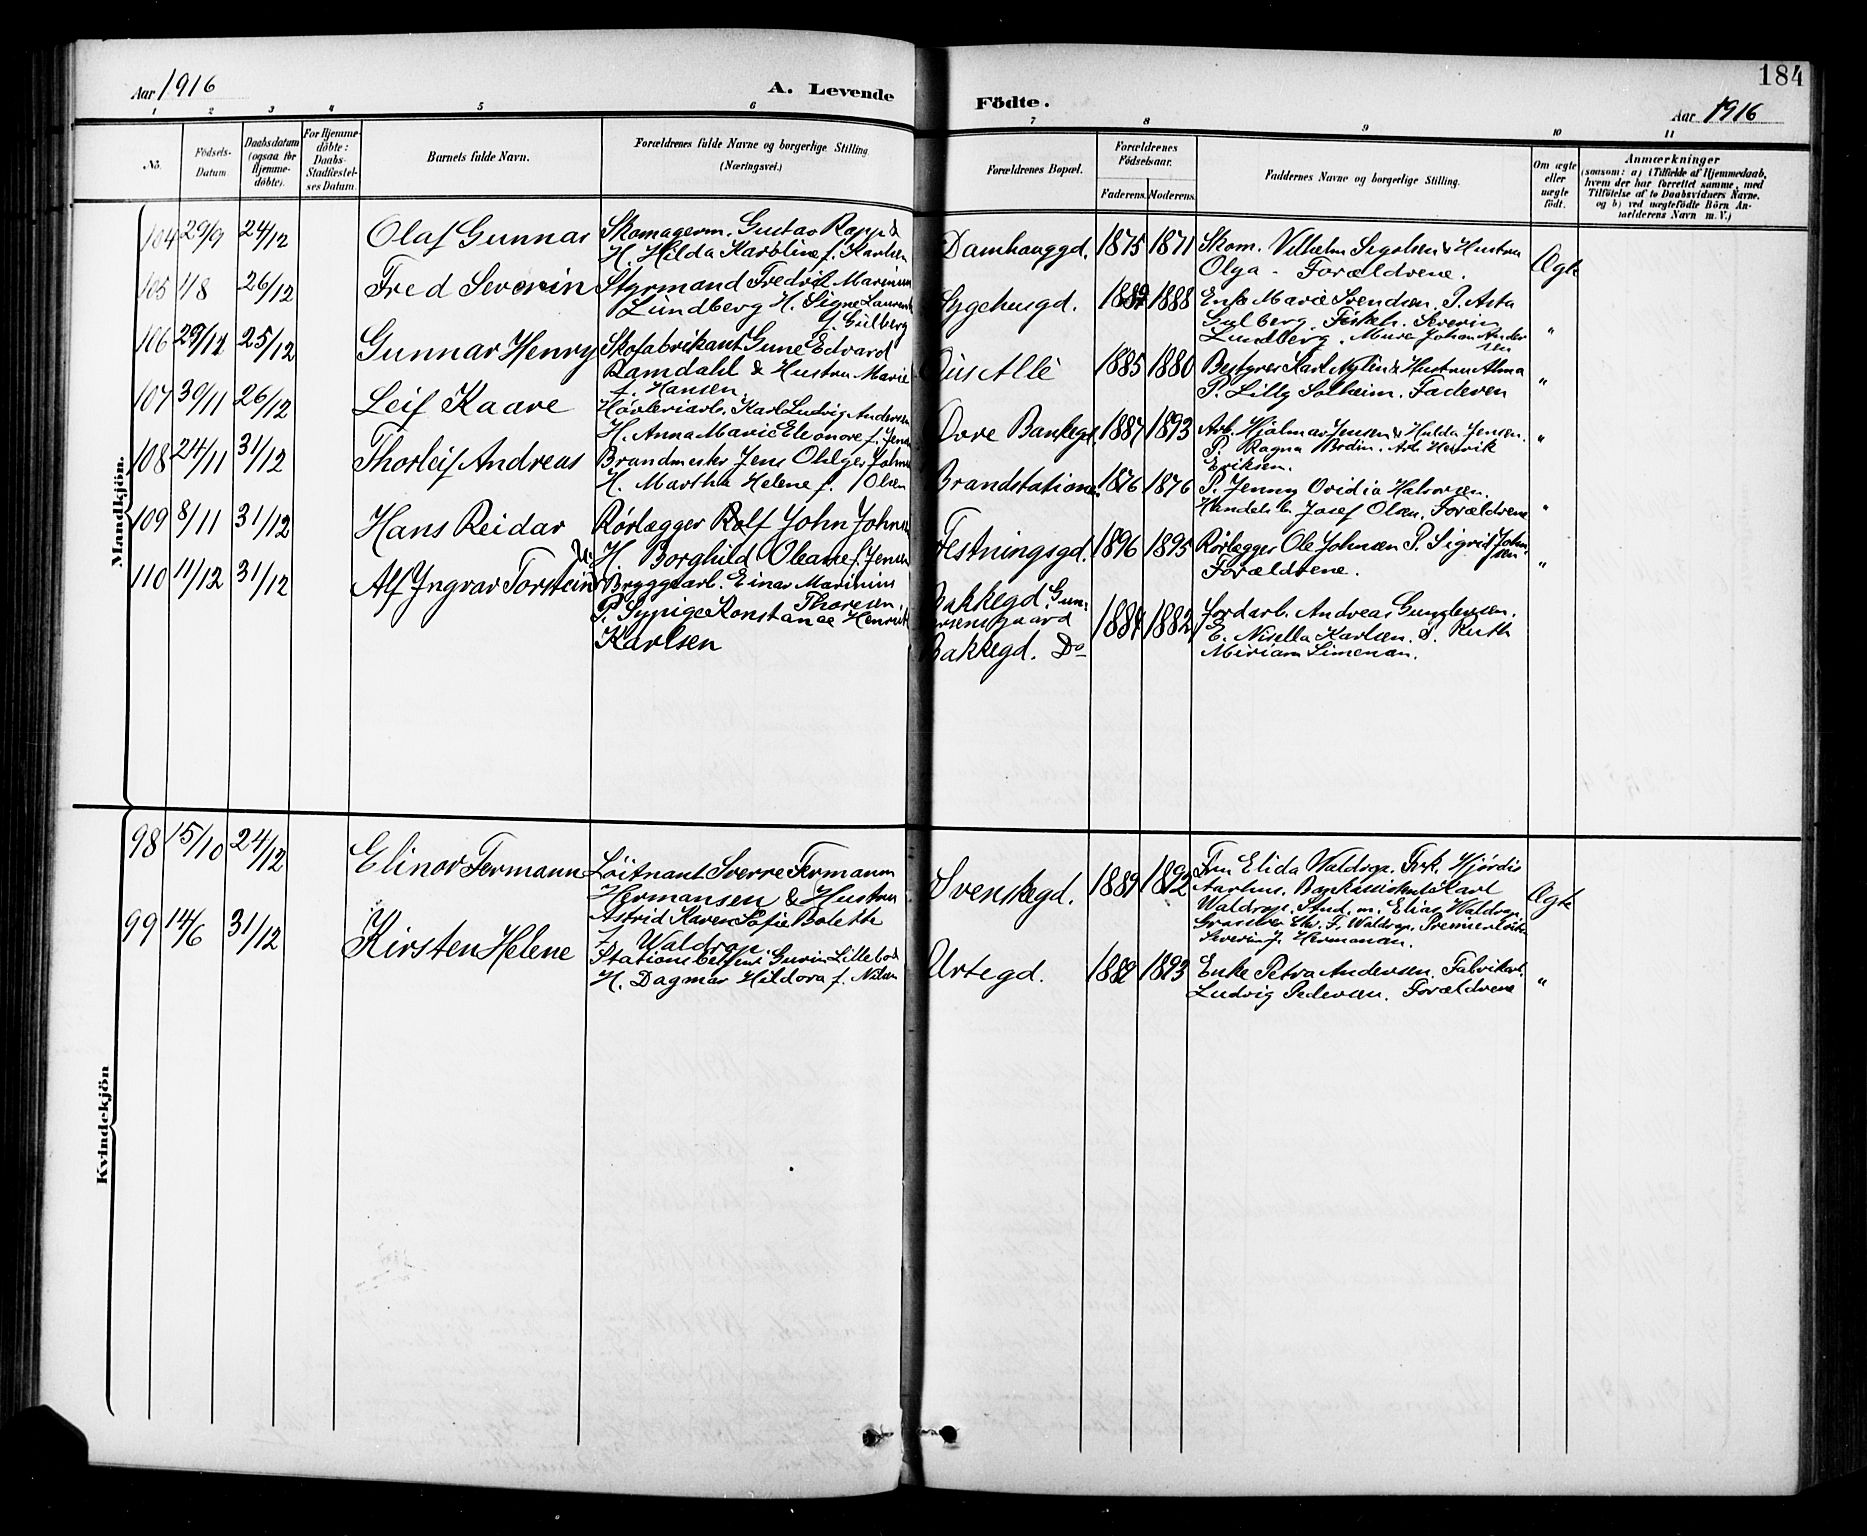 184
Aar 1916
A. Levende
Födte.
Aar 1916
1 2 3 4 5 6 7 8 9 10 11
No.
Födsels-Datum
Daabsdatum (ogsaa for Hjemme-döbte).
For Hjemme-döbte: Daabs-Stadfæstel-ses Datum.
Barnets fulde Navn.
Forældrenes fulde Navne og borgerlige Stilling (Næringsvei.)
Forældrenes Bopæl.
Forældrenes Födselsaar.
Faderens. Moderens.
Faddernes Navne og borgerlige Stilling.
Om ægte eller uægte födt.
Anmærkninger
(saasom: a) i Tilfælde af Hjemmedaab,
hvem der har forrettet samme, med
Tilföielse af to Daabsvidners Navne,
og b) ved uægtefödte Börn An-
mælderens Navn m. V.)
Mandkjön.
104 29/9 24/12 Olaf Gunnar
Skomagerm. Gustav
H. Hilda Karoline f. Karlsen
Damhauggd. 1875 1871
Skom. Vilhelm &amp; Hustru
Olga - Forældrene.
Ægte
105 26/12 Fred Severin
Styrmand Fredrik Marinius
Lundberg H. Signe
f. Gulberg
Sygehusgd. 1888
Enke Marie Svendsen, P. Asta
Gulberg. Severin
Lundberg. Johan Ander
sen
"
106 29/12 25/12 Gunnar Henry
Skofabrikant Gune Edvard
Ramdahl &amp; Hustru Marie
f. Hansen
Allé 1885 1880
Bestyrer Karl Nylén &amp; Hustru Alma
P. Lilly Solheim. Faderen
"
107 30/11 26/12 Leif Kaare
Høvleriarb. Karl Ludvig Andersen
H. Anna Marie Eleonore f. Jensen
Øvre Bankegt. 1887 1893
Arb. Hjalmar Jensen &amp; Hulda Jensen.
P. Ragna Bodin. Arb. Henrik
Eriksen.
"
108 24/11 31/12 Thorleif Andreas
Brandmester Jens
H. Martha Helene f. Olsen
Brandstationen. 1876 1876
P. Jenny Ovidia Halvorsen.
Handelsb. Josef Olsen. Forældrene
"
109 8/11 31/12 Hans Reidar
Rørlægger Rolf John
H. Borghild Oleane f. Jensen
Festningsgd. 1896 1895
Rørlægger Ole Johnsen P. Sigrid John-
sen
Forældrene.
"
110 11/12 31/12 Alf Yngvar Torstein
Bryggearb. Einar Marinius
Thoresen,
P. Sypige Konstance
Karlsen
Bakkegd. Gun-
gaard
Bakkegd. Do
1882
Jordarb. Andreas
E. Karlsen. P. Ruth
Miriam Simensen.
Kvindekjön
98 15/10 24/12 Elinor Fermann
Löitnant Sverre Fermann
Hermansen &amp; Hustru
Astrid Karen Sofie Bolette
f. Waldrop
Svenskegd. 1889 1892
Fru Elida Waldrop. Frk. Hjørdis
Aarhus. Karl
Waldrop. Stud. m. Elias Waldrop.
Waldrop. Premierløitn.
Severin J. Hermansen.
Ægte
99 14/6 31/12 Kirsten Helene
Lillebo
H. Dagmar Hildora f. Nilsen
Urtegd. 1893
Enke Petra Andersen. Fabrikarb.
Ludvig Pedersen. Forældrene
"